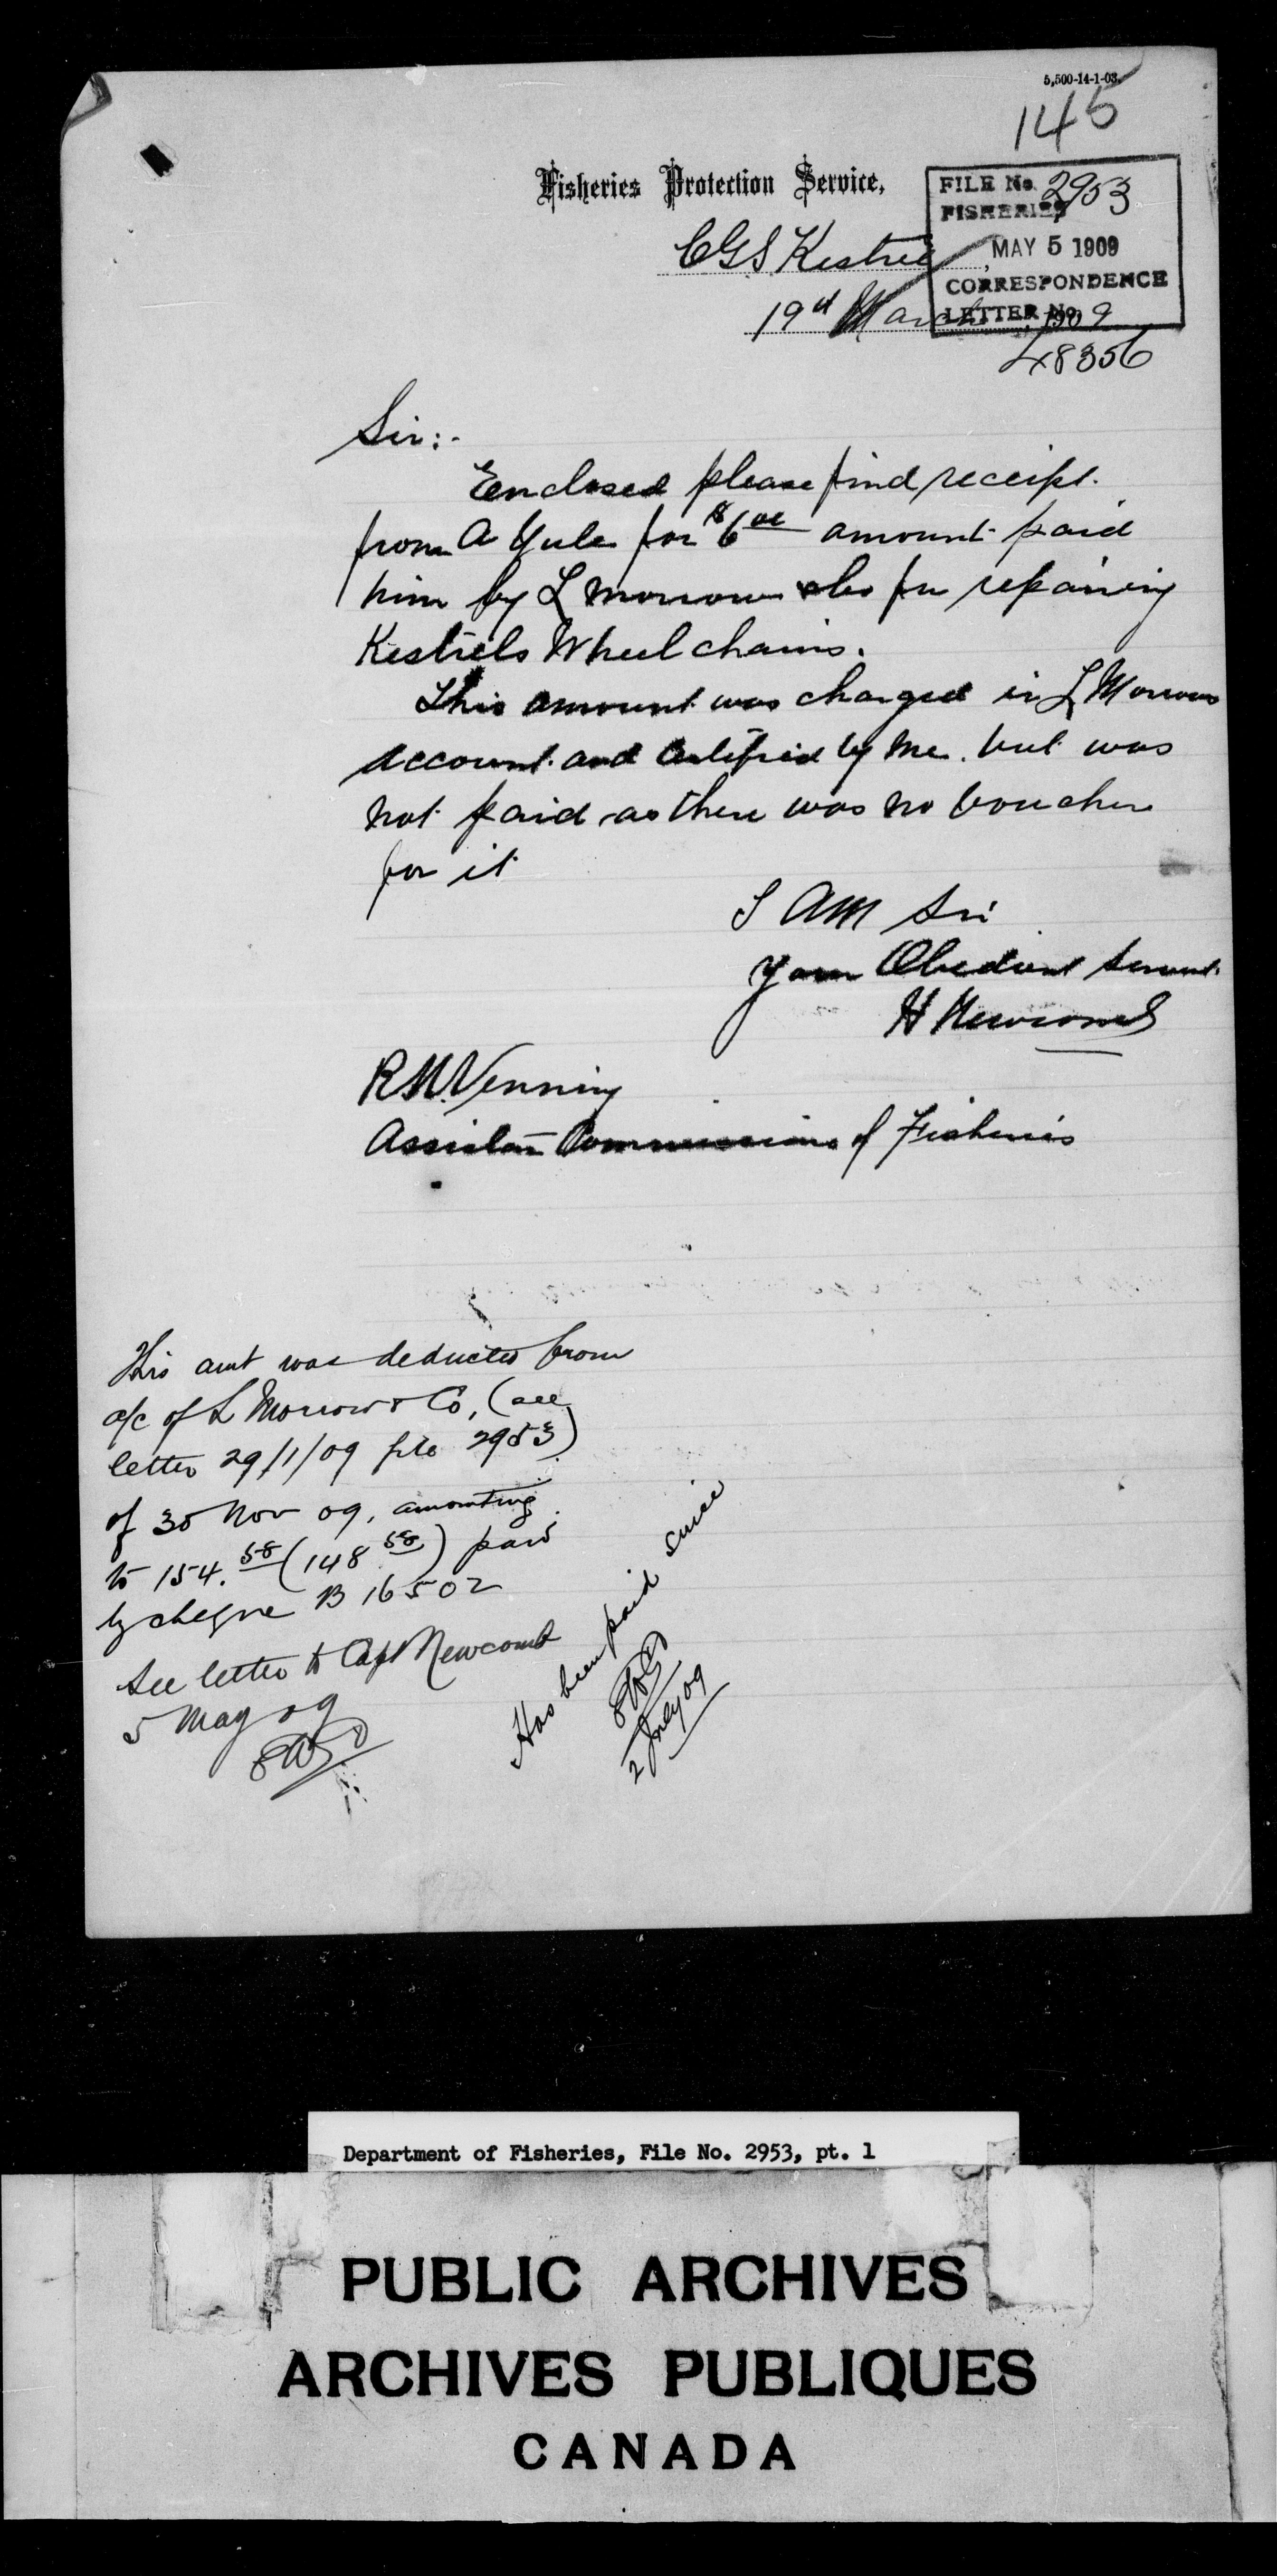 5,500-14-1-03.
145
Fisheries Protection Service,
FILE No. 2953
FISHERIES
MAY 5 1909
CORRESPONDENCE
LETTER No.
48356
CGS Kestrel
19th March, 1909
Sir:-
Enclosed please find receipt
from A Yule for $6 00 amount paid
him by L Morrow & Co for repairing
Kestrels Wheel chains.
This amount was charged in L Morrows
account and Certified by me. but was
not paid as there was no voucher
for it
I AM Sir
Your Obedient Servant
H Newcomb
R.N. Venning
Assistan Commissioner of Fisheries
This amt was deducted from
a/c of L Morrow & Co, (see
letter 29/1/09 file 2953)
of 30 Nov 09, amounting
to 154.58 (148 58) paid
by cheque B 16502
See letter to Capt Newcomb
5 May 09
Has been paid since
2 July 09
Department of Fisheries, File No. 2953, pt. 1
PUBLIC ARCHIVES
ARCHIVES PUBLIQUES
CANADA